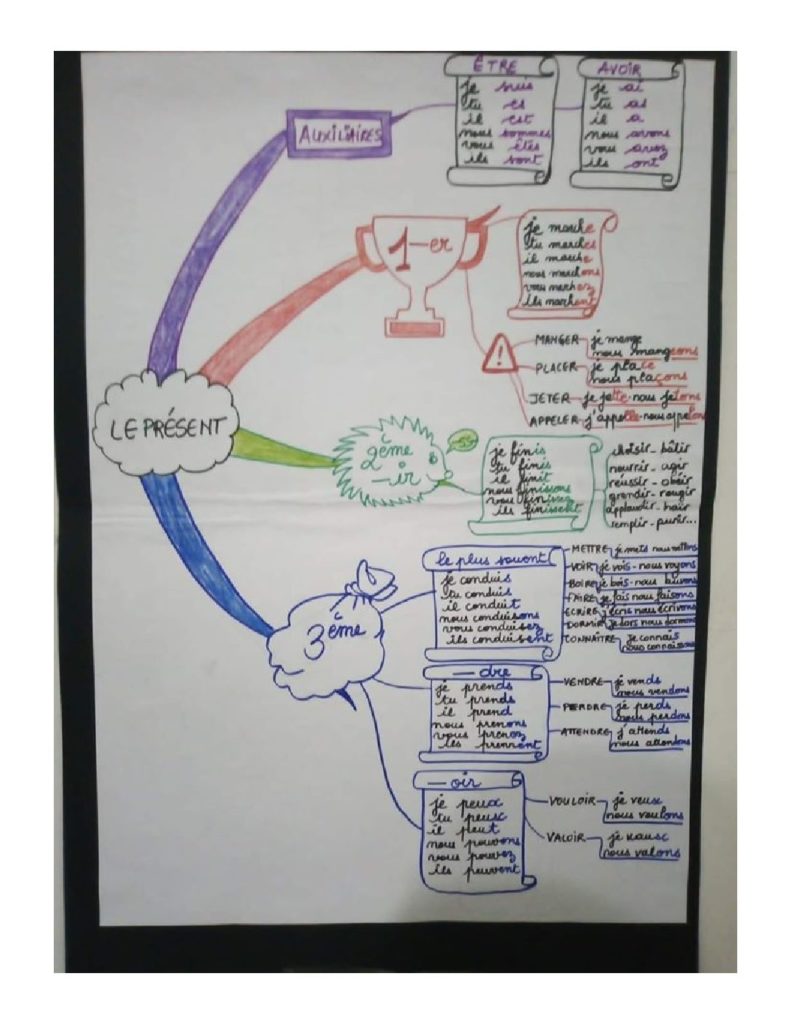 LE PRÉSENT
AUXILIAIRES
ÊTRE
je suis
tu es
il est
nous sommes
vous êtes
ils sont
AVOIR
je ai
tu as
il a
nous avons
vous avez
ils ont
1-er
je marche
tu marches
il marche
nous marchons
vous marchez
ils marchent
!
MANGER je mange
nous mangeons
PLACER je place
nous plaçons
JETER je jette-nous jetons
APPELER j'appelle-nous appelons
2ème
-ir
-ss-
je finis
tu finis
il finit
nous finissons
vous finissez
ils finissent
choisir - bâtir
nourrir - agir
réussir - obéir
grandir - rougir
applaudir - haïr
remplir - punir...
3ème
le plus souvent
je conduis
tu conduis
il conduit
nous conduisons
vous conduisez
ils conduisent
METTRE je mets nous mettons
VOIR je vois - nous voyons
BOIRE je bois - nous buvons
FAIRE je fais nous faisons
ÉCRIRE j'écris nous écrivons
DORMIR je dors nous dormons
CONNAÎTRE je connais
nous connaissons
-dre
je prends
tu prends
il prend
nous prenons
vous prenez
ils prennent
VENDRE je vends
nous vendons
PERDRE je perds
nous perdons
ATTENDRE j'attends
nous attendons
-oir
je peux
tu peux
il peut
nous pouvons
vous pouvez
ils peuvent
VOULOIR je veux
nous voulons
VALOIR je vaux
nous valons